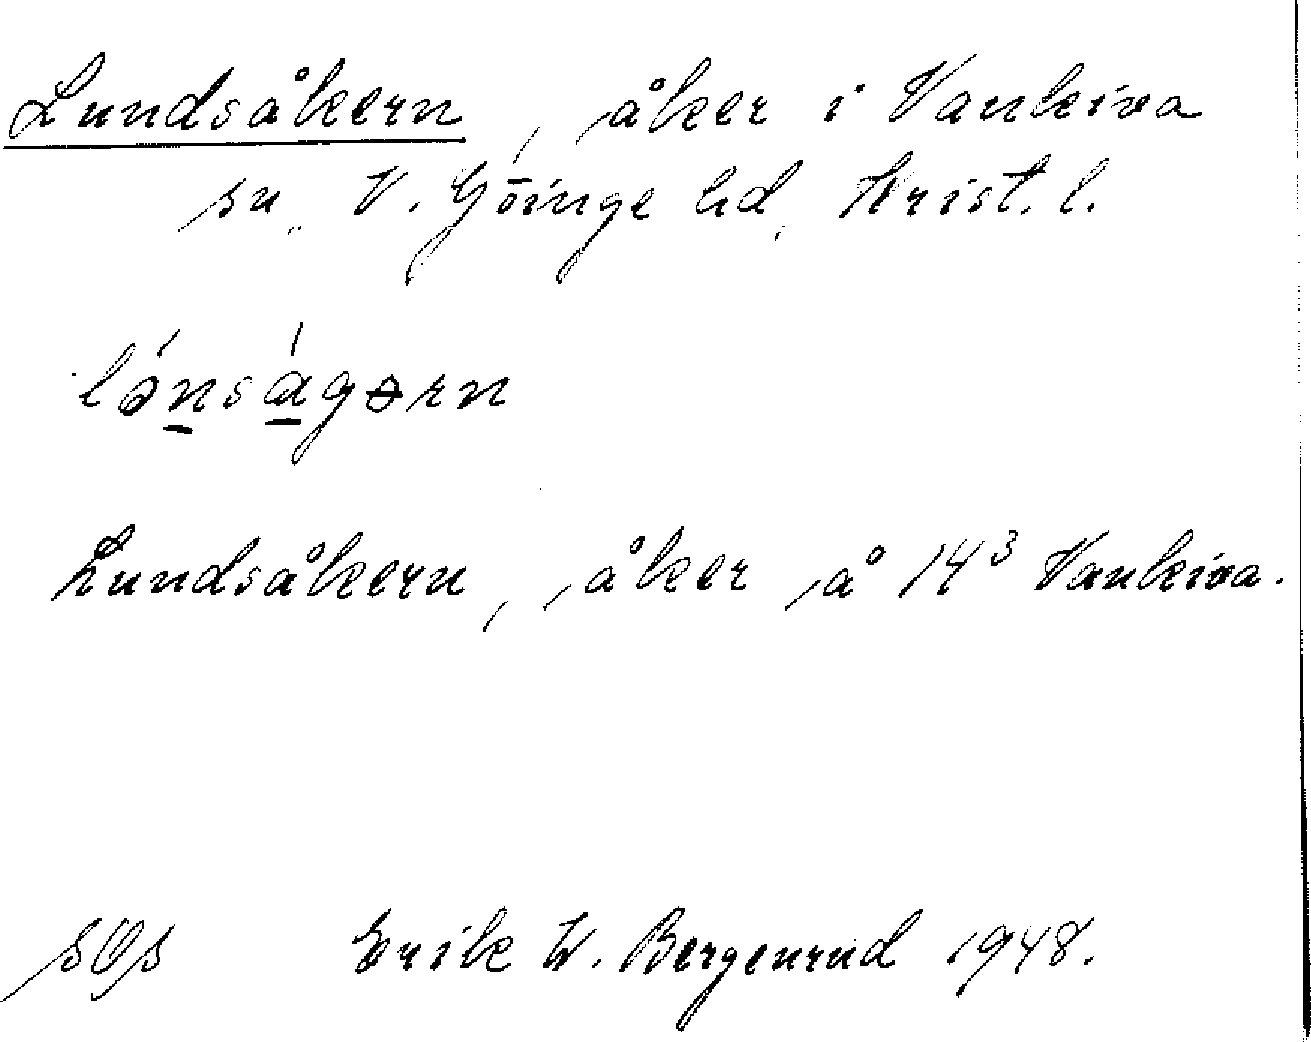 Lundsåkern, åker i Vankiva
sn, V. Göinge hd, Krist. l.
lónságərn
Lundsåkern, åker å 14³ Vankiva.
Erik W. Bergenrud 1948.